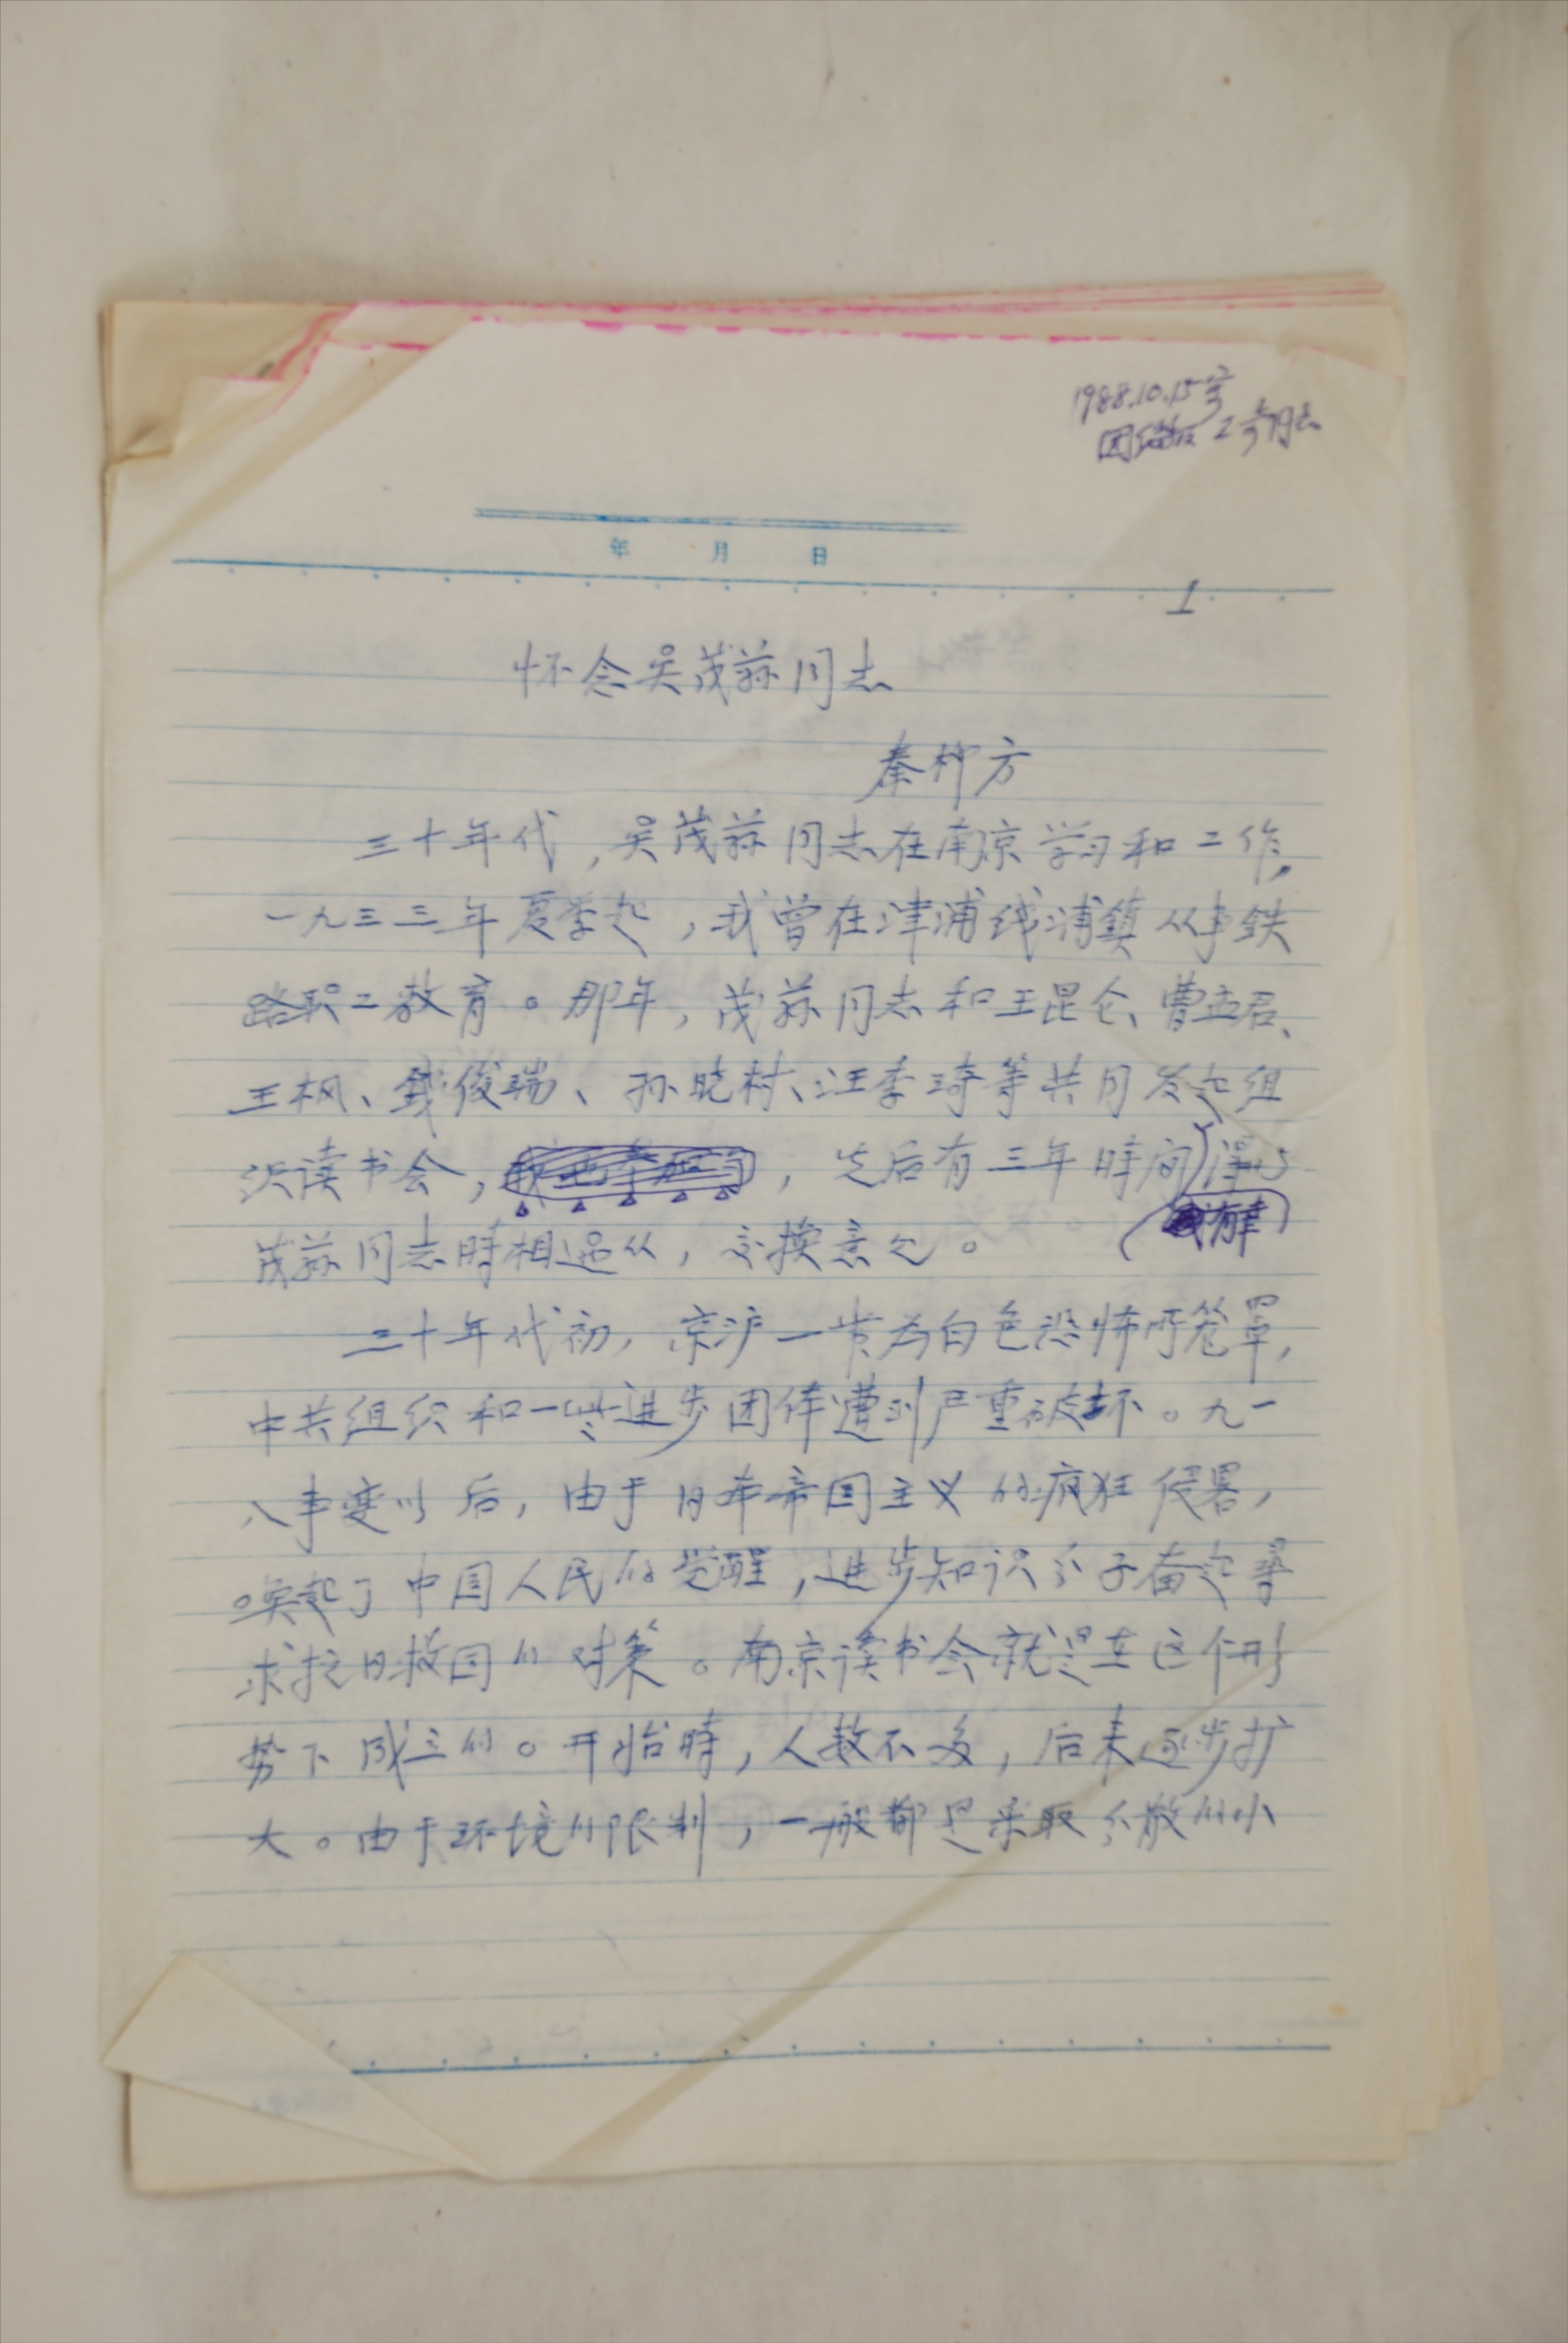 1988.10.15号
团结报 2号同志
年 月 日
1
怀念吴茂荪同志
秦柳方
三十年代，吴茂荪同志在南京学习和工作，
一九三三年夏季起，我曾在津浦线浦鎮从事鉄
路职工教育。那年，茂荪同志和王昆仑、曹孟君、
王枫、錢俊瑞、孙晓村、汪季琦等共同发起组
识读书会，，先后有三年時间得以
我有幸
茂荪同志時相过从，交换意见。
三十年代初，京沪一带为白色恐怖所笼罩，
中共组织和一些进步团体遭到严重破坏。九一
八事变以后，由于日本帝国主义的疯狂侵畧，
唤起了中国人民的觉醒，进步知识分子奋起寻
求抗日救国的对策。南京读书会就是在这个形
势下成立的。开始時，人数不多，后来逐步扩
大。由于环境的限制，一般都是采取分散的小